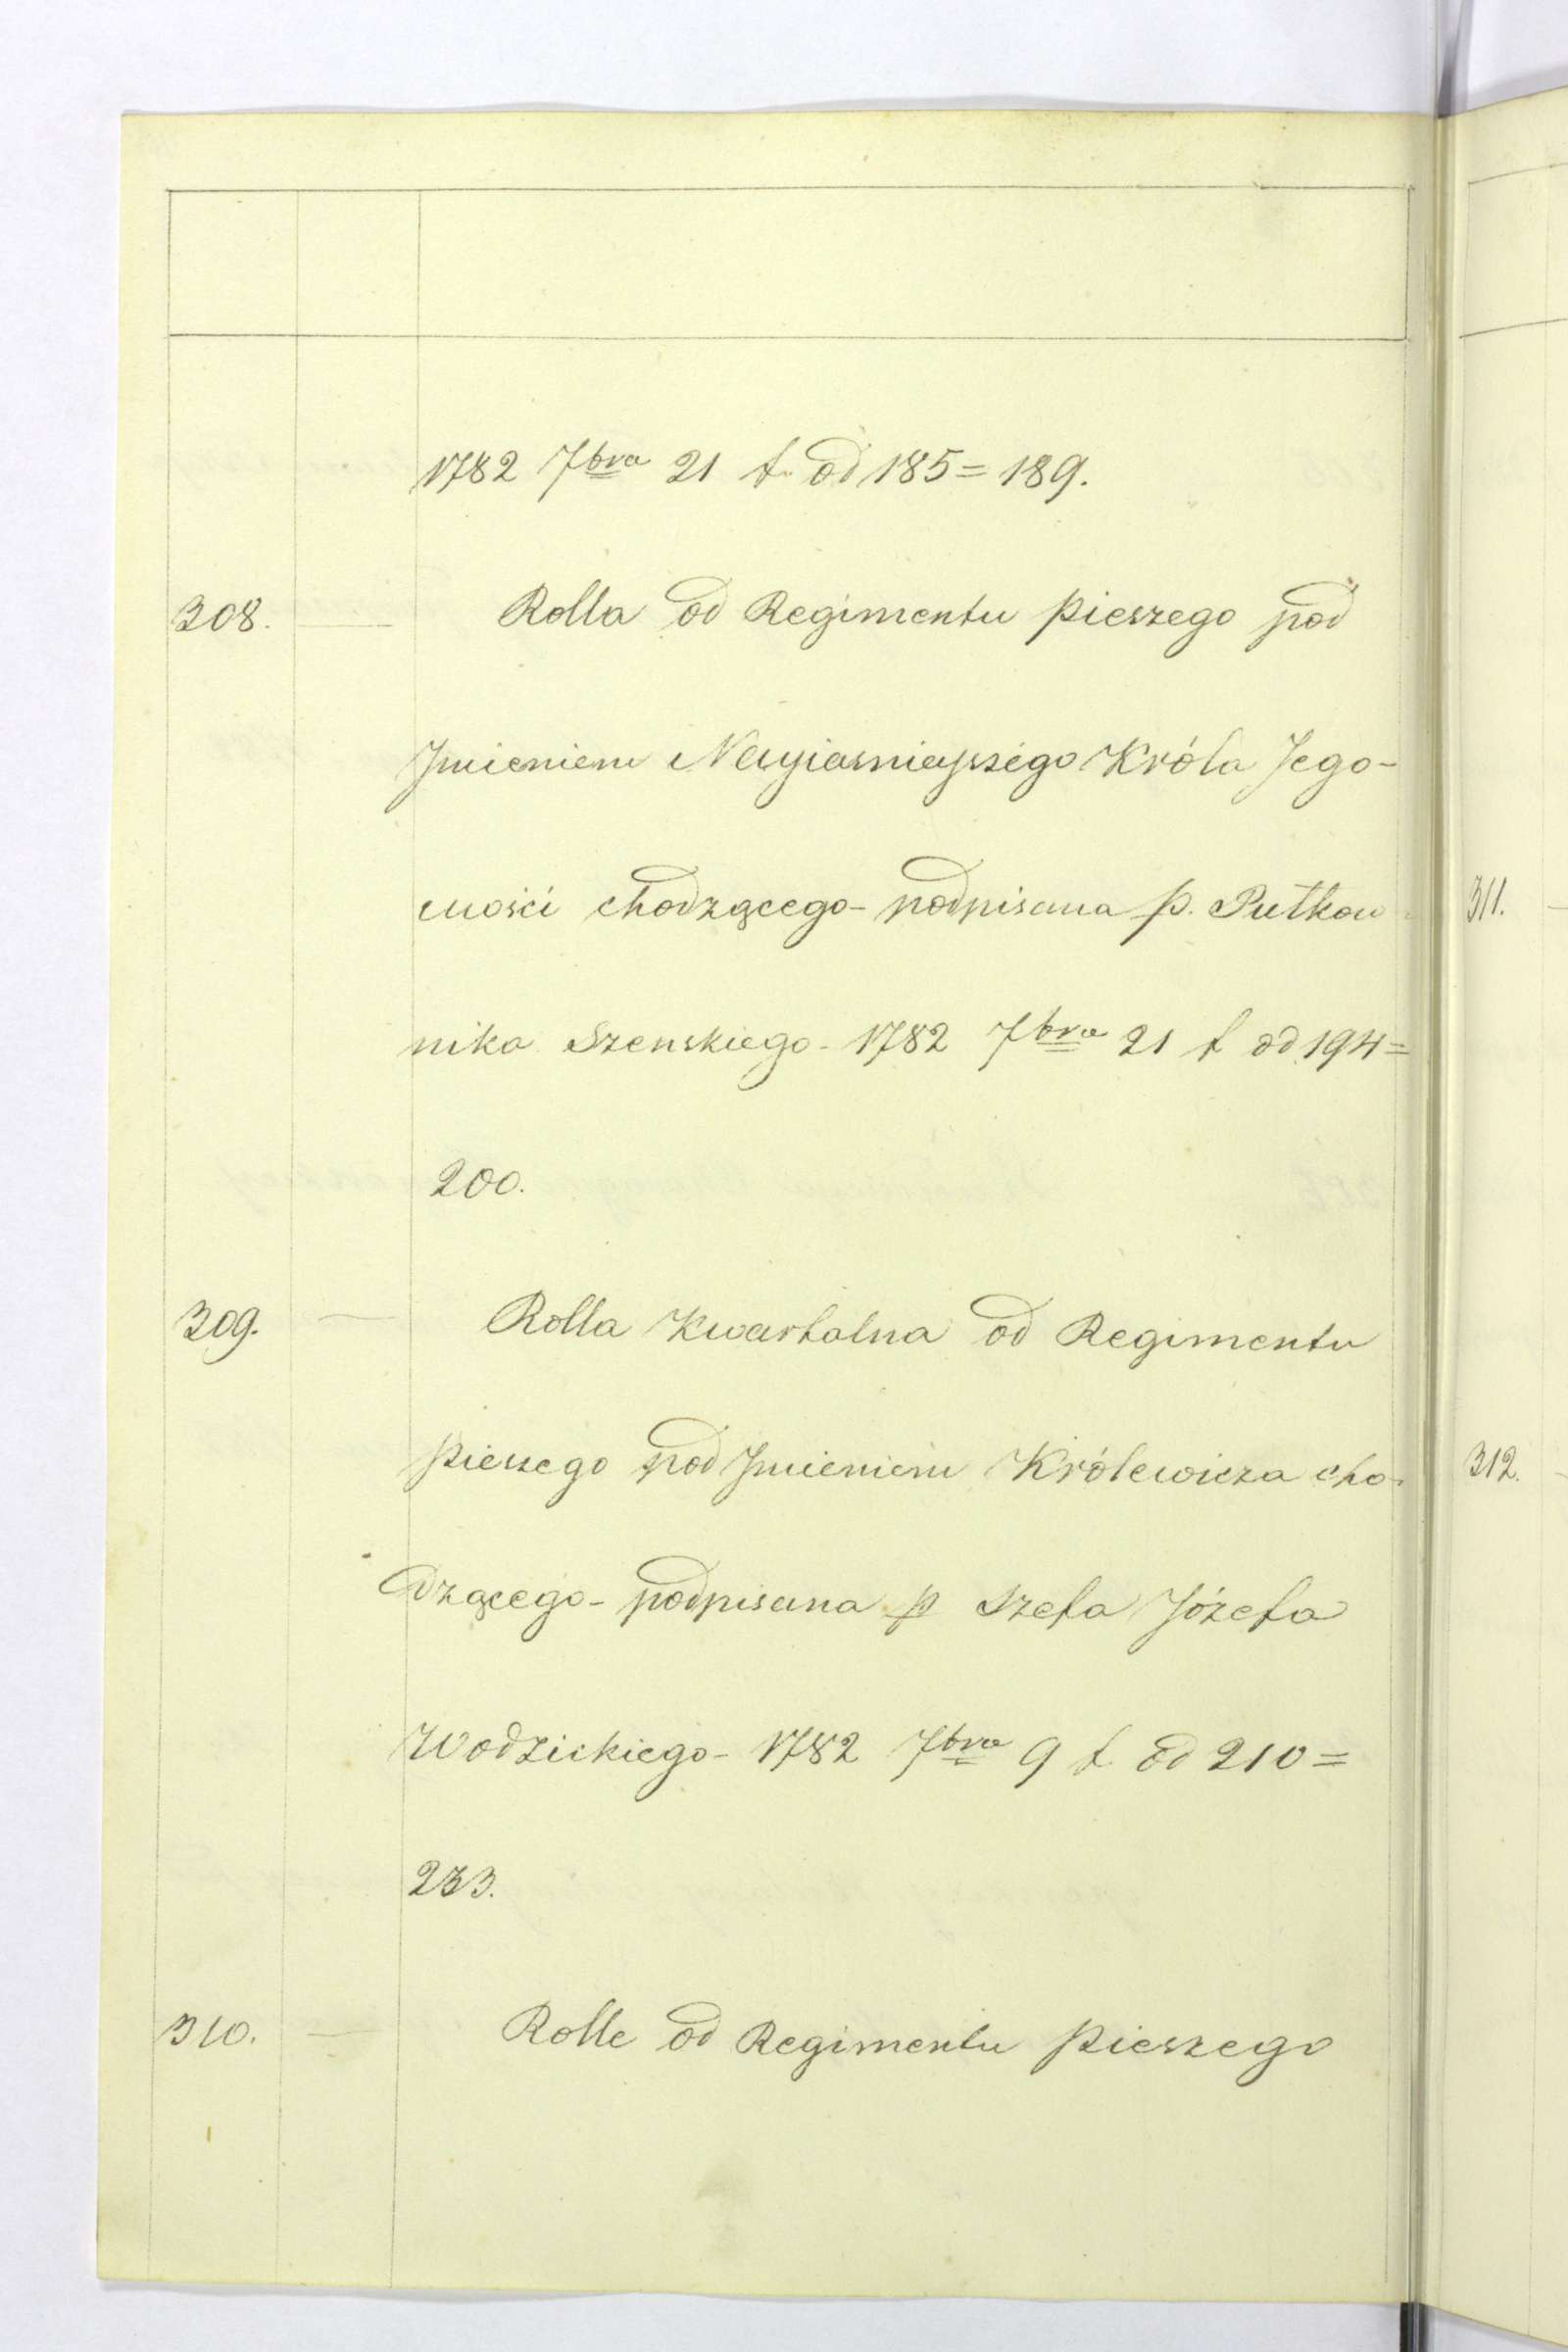 1782 7bra 21 f. od 185=189.
308. — Rolla od Regimentu pieszego pod
Jmieniem Nayiasnieyszego Króla Jego-
mości chodzącego - podpisana p. Pułkow-
nika Szenskiego - 1782 7bra 21 f od 194=
200.
309. — Rolla Kwartalna od Regimentu
pieszego pod Jmieniem Królewicza cho-
dzącego - podpisana p Szefa Józefa
Wodzickiego - 1782 7bra 9 f od 210=
233.
310. — Rolle od Regimentu pieszego
311.
312.